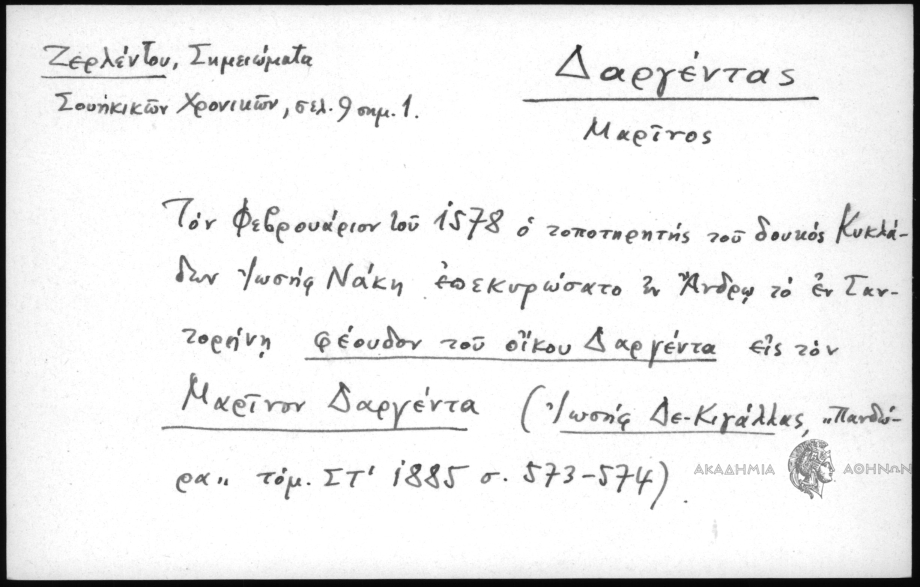 Ζερλέντου, Σημειώματα
Σουηκικῶν Χρονικῶν, σελ. 9 σημ. 1.
Δαργέντας
Μαρῖνος
Τόν Φεβρουάριον τοῦ 1578 ὁ τοποτηρητής τοῦ δουκός Κυκλά-
δων Ἰωσήφ Νάκη ἐπεκυρώσατο ἐν Ἄνδρῳ τό ἐν Σαν-
τορήνῃ φέουδον τοῦ οἴκου Δαργέντα εἰς τόν
Μαρῖνον Δαργέντα (Ἰωσήφ Δε-Κιγάλλας, „Πανδώ-
ρα„ τόμ. ΣΤ' 1885 σ. 573-574).
ΑΚΑΔΗΜΙΑ ΑΘΗΝΩΝ